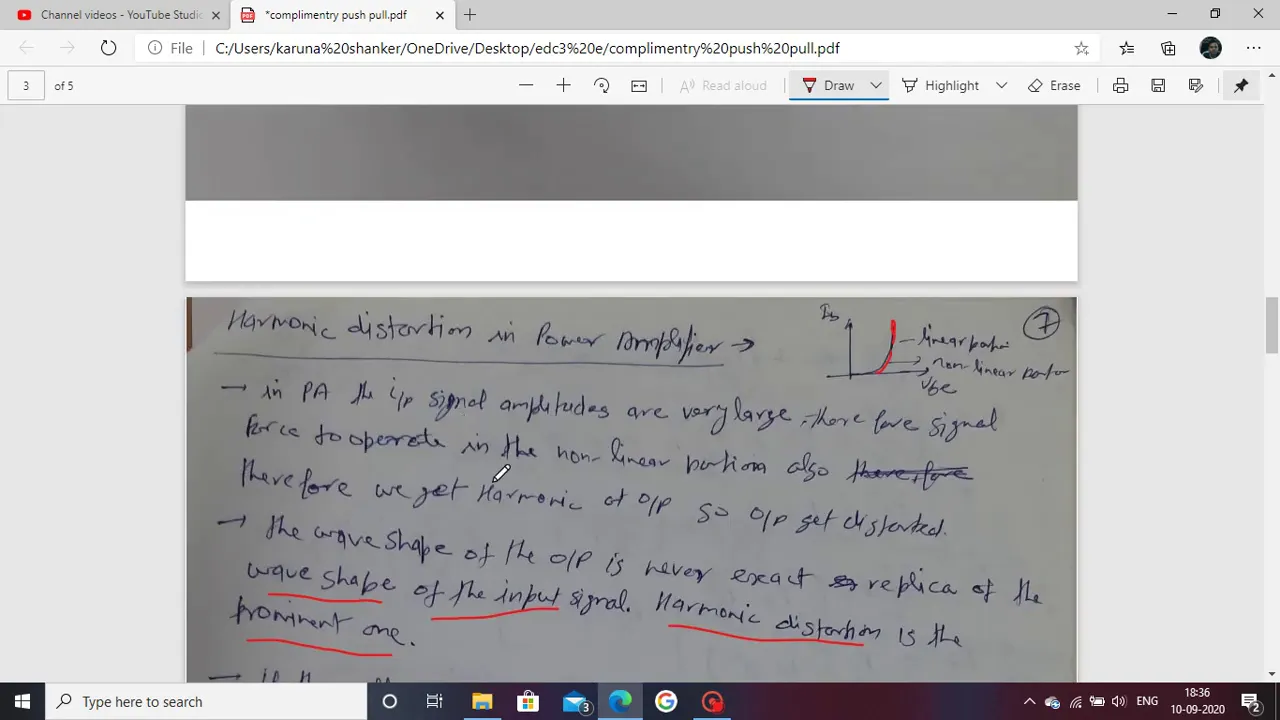 Channel videos - YouTube Studi
*complimentry push pull.pdf
File C:/Users/karuna%20shanker/OneDrive/Desktop/edc3%20e/complimentry%20push%20pull.pdf
3 of 5 Read aloud Draw Highlight Erase
Harmonic distortion in Power Amplifier →
Ib
linear portion
non-linear portion
Vbe
7
→ in PA the i/p signal amplitudes are very large, therefore signal
force to operate in the non-linear portion also therefore
therefore we get Harmonic at O/P so O/P get distorted.
→ the wave shape of the O/P is never exact replica of the
wave shape of the input signal. Harmonic distortion is the
prominent one.
→ if the
Type here to search
3
ENG
18:36
10-09-2020
2